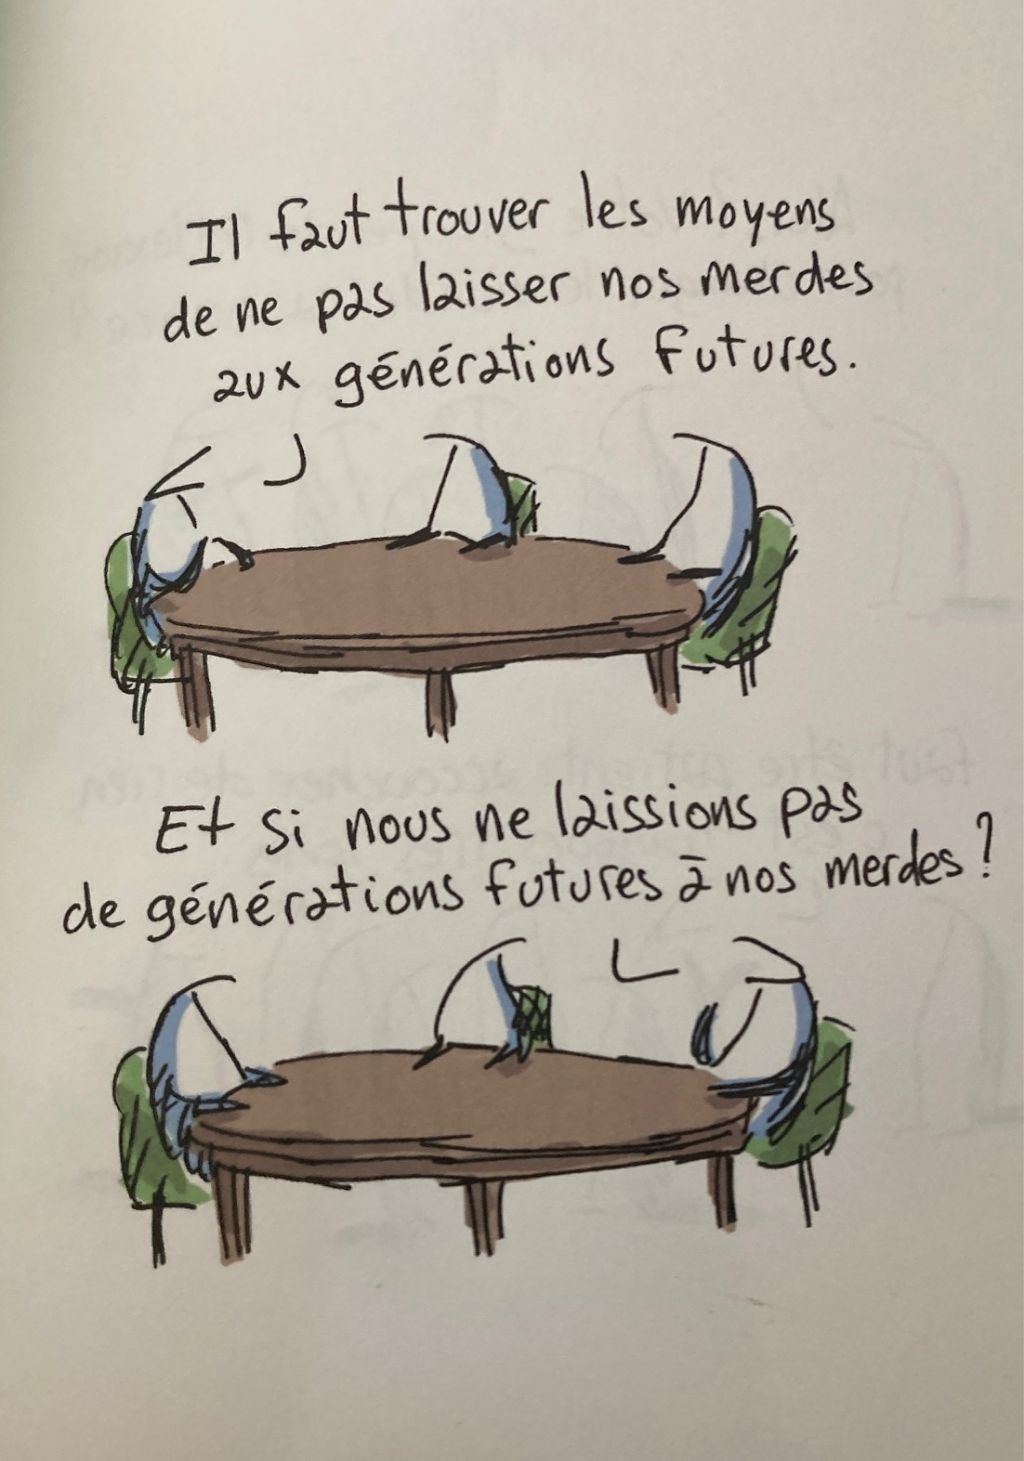 Il faut trouver les moyens
de ne pas laisser nos merdes
aux générations futures.
Et si nous ne laissions pas
de générations futures à nos merdes ?